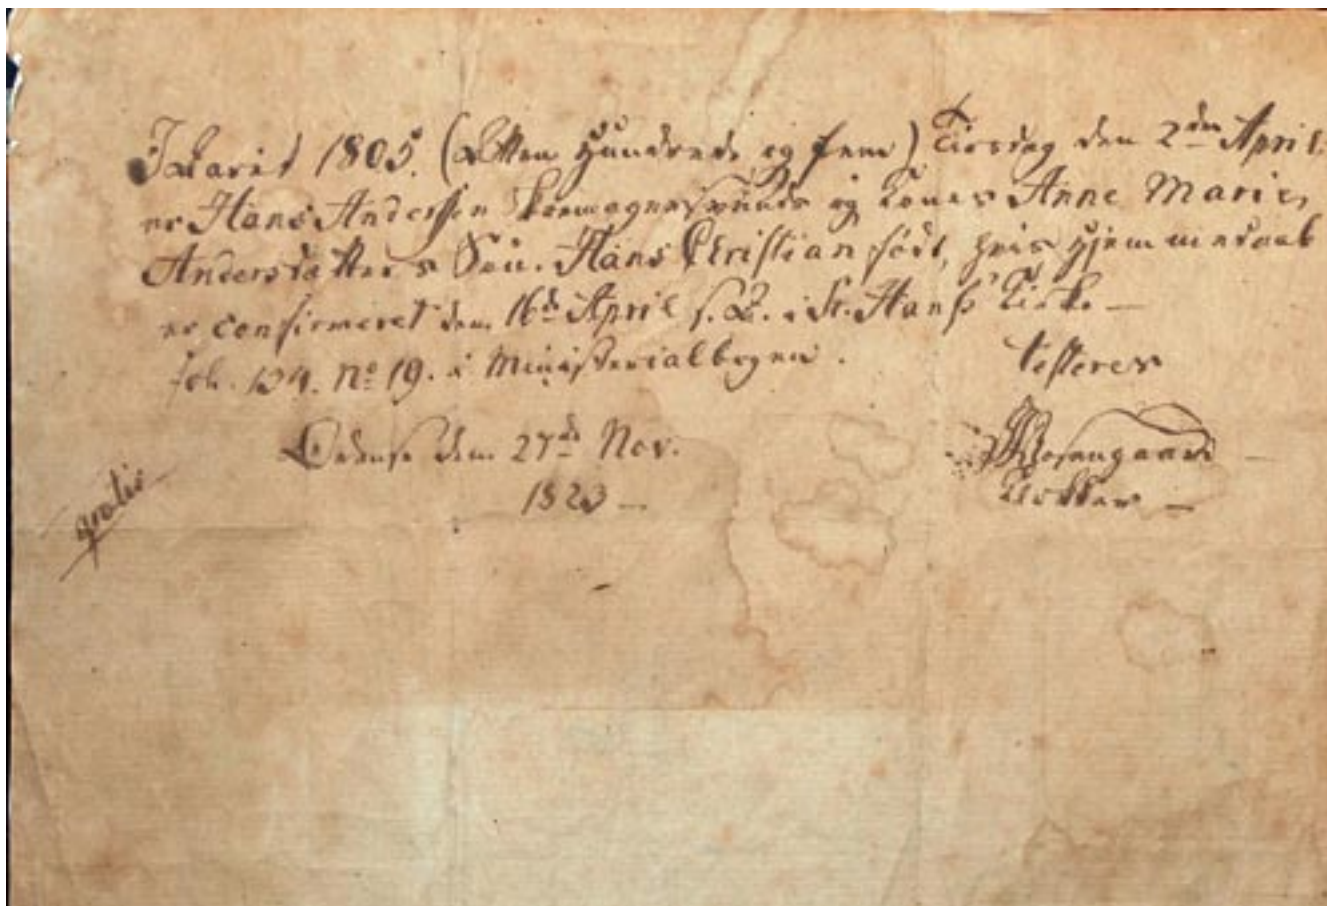 I Aaret 1805. (Atten Hundrede og fem) Tirsdag den 2den April
er Hans Andersen Skomagersvends og Kones Anne Marie
Andersdatters Søn. Hans Christian født, hvis Hjemmedaab
er confirmeret den 16de April s. A. i St. Hans Kirke —
Fol. 134. No 19. i Ministerialbogen.
testeres
Odense den 27de Nov.
1823 —
Rosengaard —
Klokker —
gratis